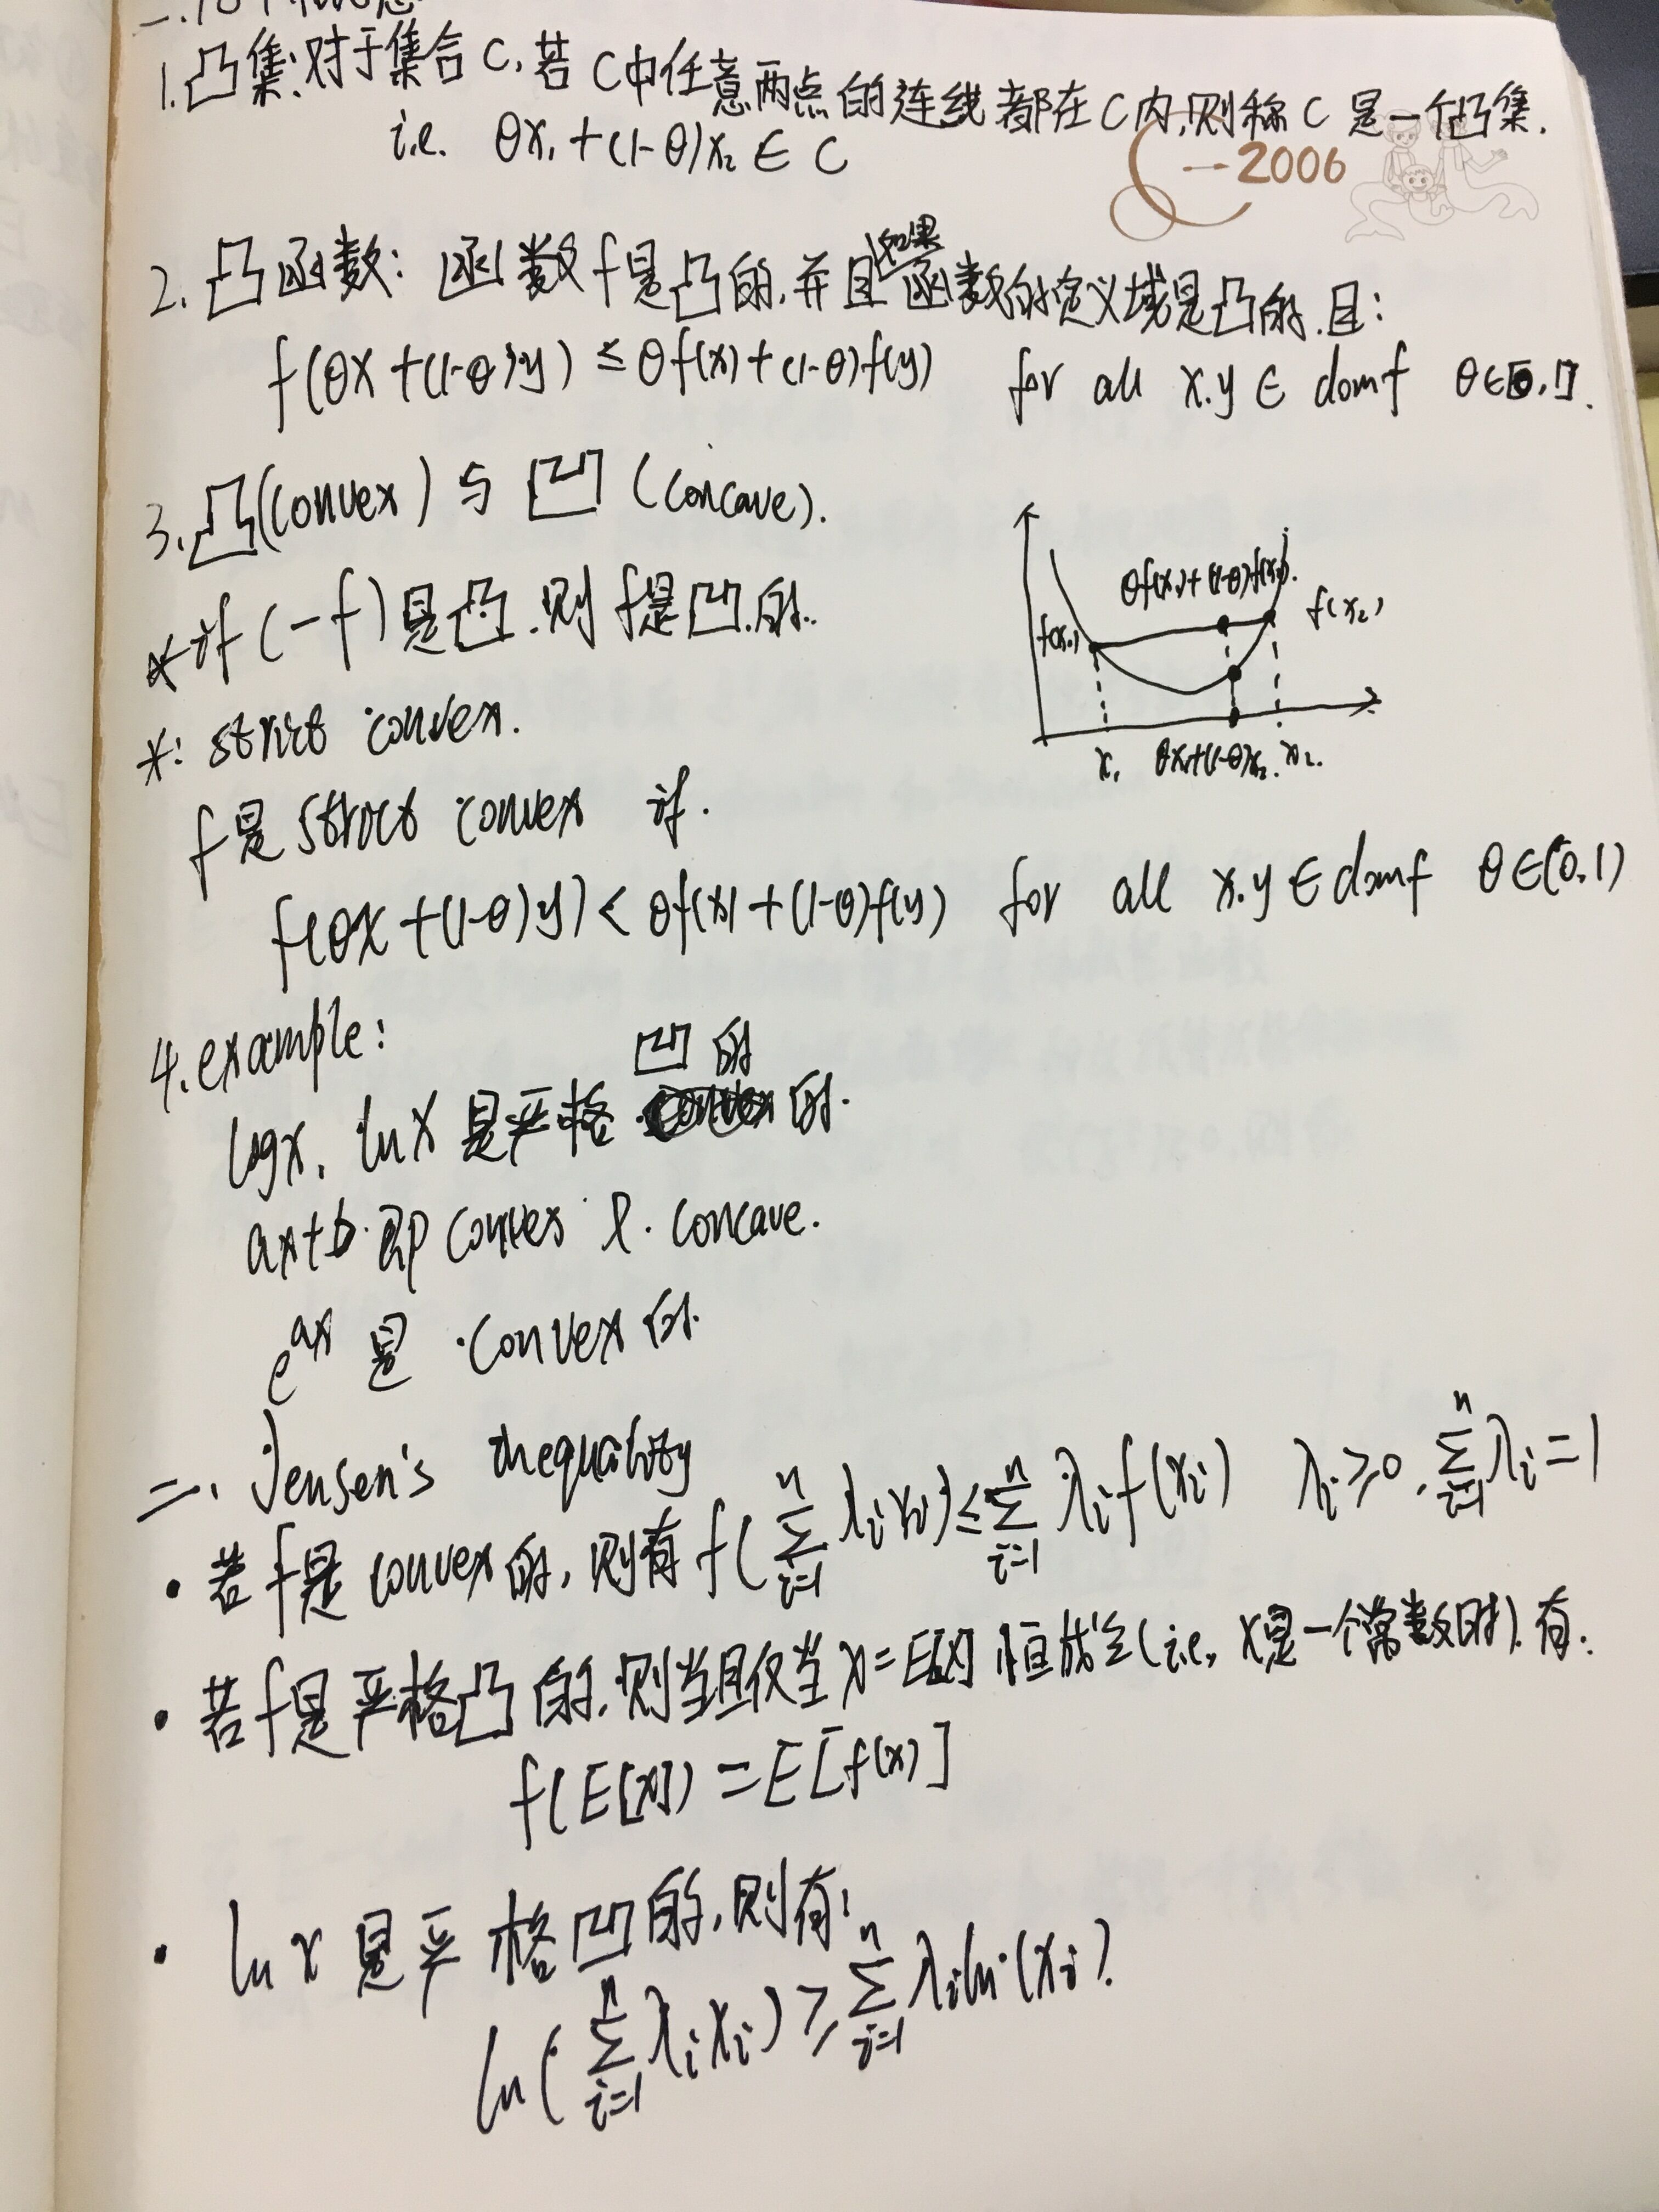 1.凸集:对于集合C,若C中任意两点的连线都在C内,则称C是一个凸集.
i.e. θx₁+(1-θ)x₂∈C
-2006
2.凸函数:函数f是凸的,并且如果函数的定义域是凸的.且:
f(θx+(1-θ)y)≤θf(x)+(1-θ)f(y) for all x.y∈domf θ∈[0,1].
3.凸(convex)与凹(concave).
*if(-f)是凸.则f是凹.的.
*:strict convex.
f是strict convex if.
f(θx+(1-θ)y)<θf(x)+(1-θ)f(y) for all x.y∈domf θ∈(0,1)
θf(x₁)+(1-θ)f(x₂).
f(x₁)
f(x₂)
x₁ θx₁+(1-θ)x₂. x₂.
4.example:
凹的
logx, lnx是严格的.
ax+b.即convex & concave.
e^ax 是 convex的.
二.Jensen's inequality
·若f是convex的,则有f(∑_{i=1}^{n}λᵢxᵢ)≤∑_{i=1}^{n}λᵢf(xᵢ) λᵢ≥0,∑_{i=1}^{n}λᵢ=1
·若f是严格凸的,则当且仅当x=E[x]恒成立(i.e,x是一个常数时).有:
f(E[x])=E[f(x)]
·lnx是严格凹的,则有:
ln(∑_{i=1}^{n}λᵢxᵢ)≥∑_{i=1}^{n}λᵢln(xᵢ).